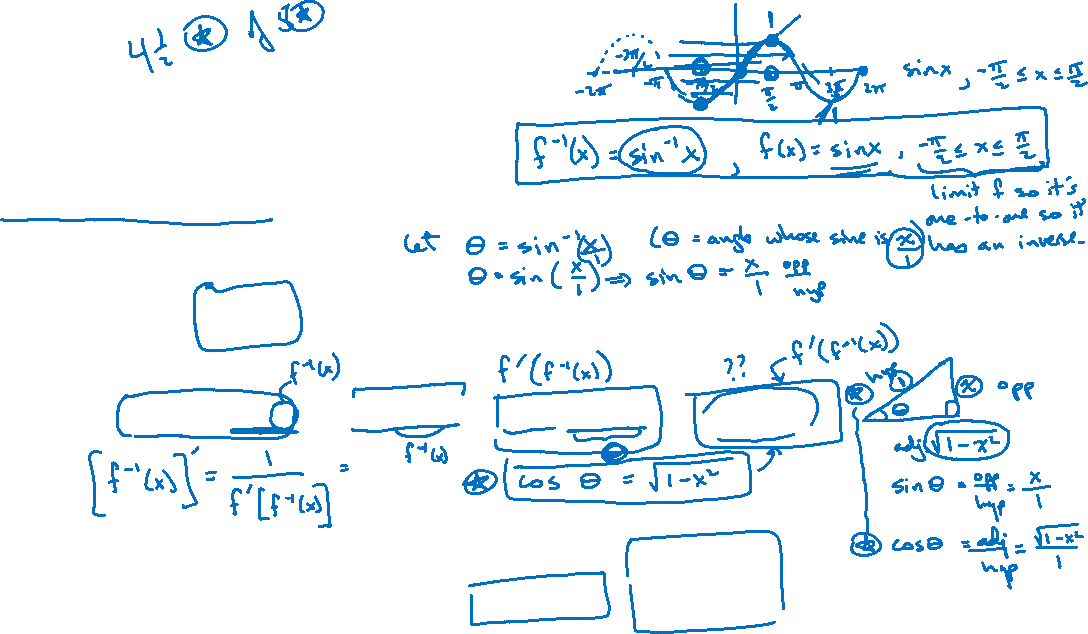 4 1/2 * *
1
-3π/2
-2π -π π/2 π 3π/2 2π
1
sin x , -π/2 ≤ x ≤ π/2
f⁻¹(x) = sin⁻¹ x , f(x) = sin x , -π/2 ≤ x ≤ π/2
limit f so it's
one-to-one so it
has an inverse.
Let θ = sin⁻¹(x/1) (θ = angle whose sine is x/1)
θ = sin (x/1) ⇒ sin θ = x/1 opp/hyp
f⁻¹(x)
f'(f⁻¹(x))
??
f'(f⁻¹(x))
hyp 1
* θ x opp
adj √(1-x²)
f⁻¹(x)
θ
[f⁻¹(x)]' = 1/f'[f⁻¹(x)] =
* cos θ = √(1-x²)
sin θ = opp/hyp = x/1
* cos θ = adj/hyp = √(1-x²)/1